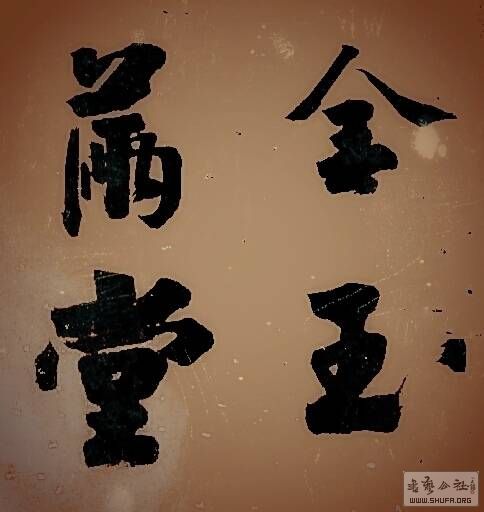 金玉
滿堂
书艺公社
WWW.SHUFA.ORG